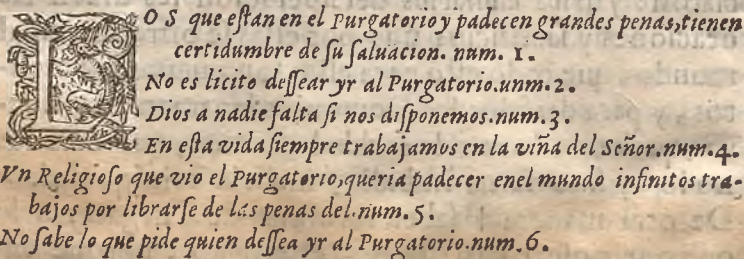 LOS que eſtan en el Purgatorio y padecen grandes penas, tienen
certidumbre de ſu ſaluacion. num. 1.
No es licito deſſear yr al Purgatorio. unm. 2.
Dios a nadie falta ſi nos diſponemos. num. 3.
En eſta vida ſiempre trabajamos en la viña del Señor. num. 4.
Vn Religioſo que vio el Purgatorio, queria padecer enel mundo infinitos tra-
bajos por librarſe de las penas del. num. 5.
No ſabe lo que pide quien deſſea yr al Purgatorio. num. 6.